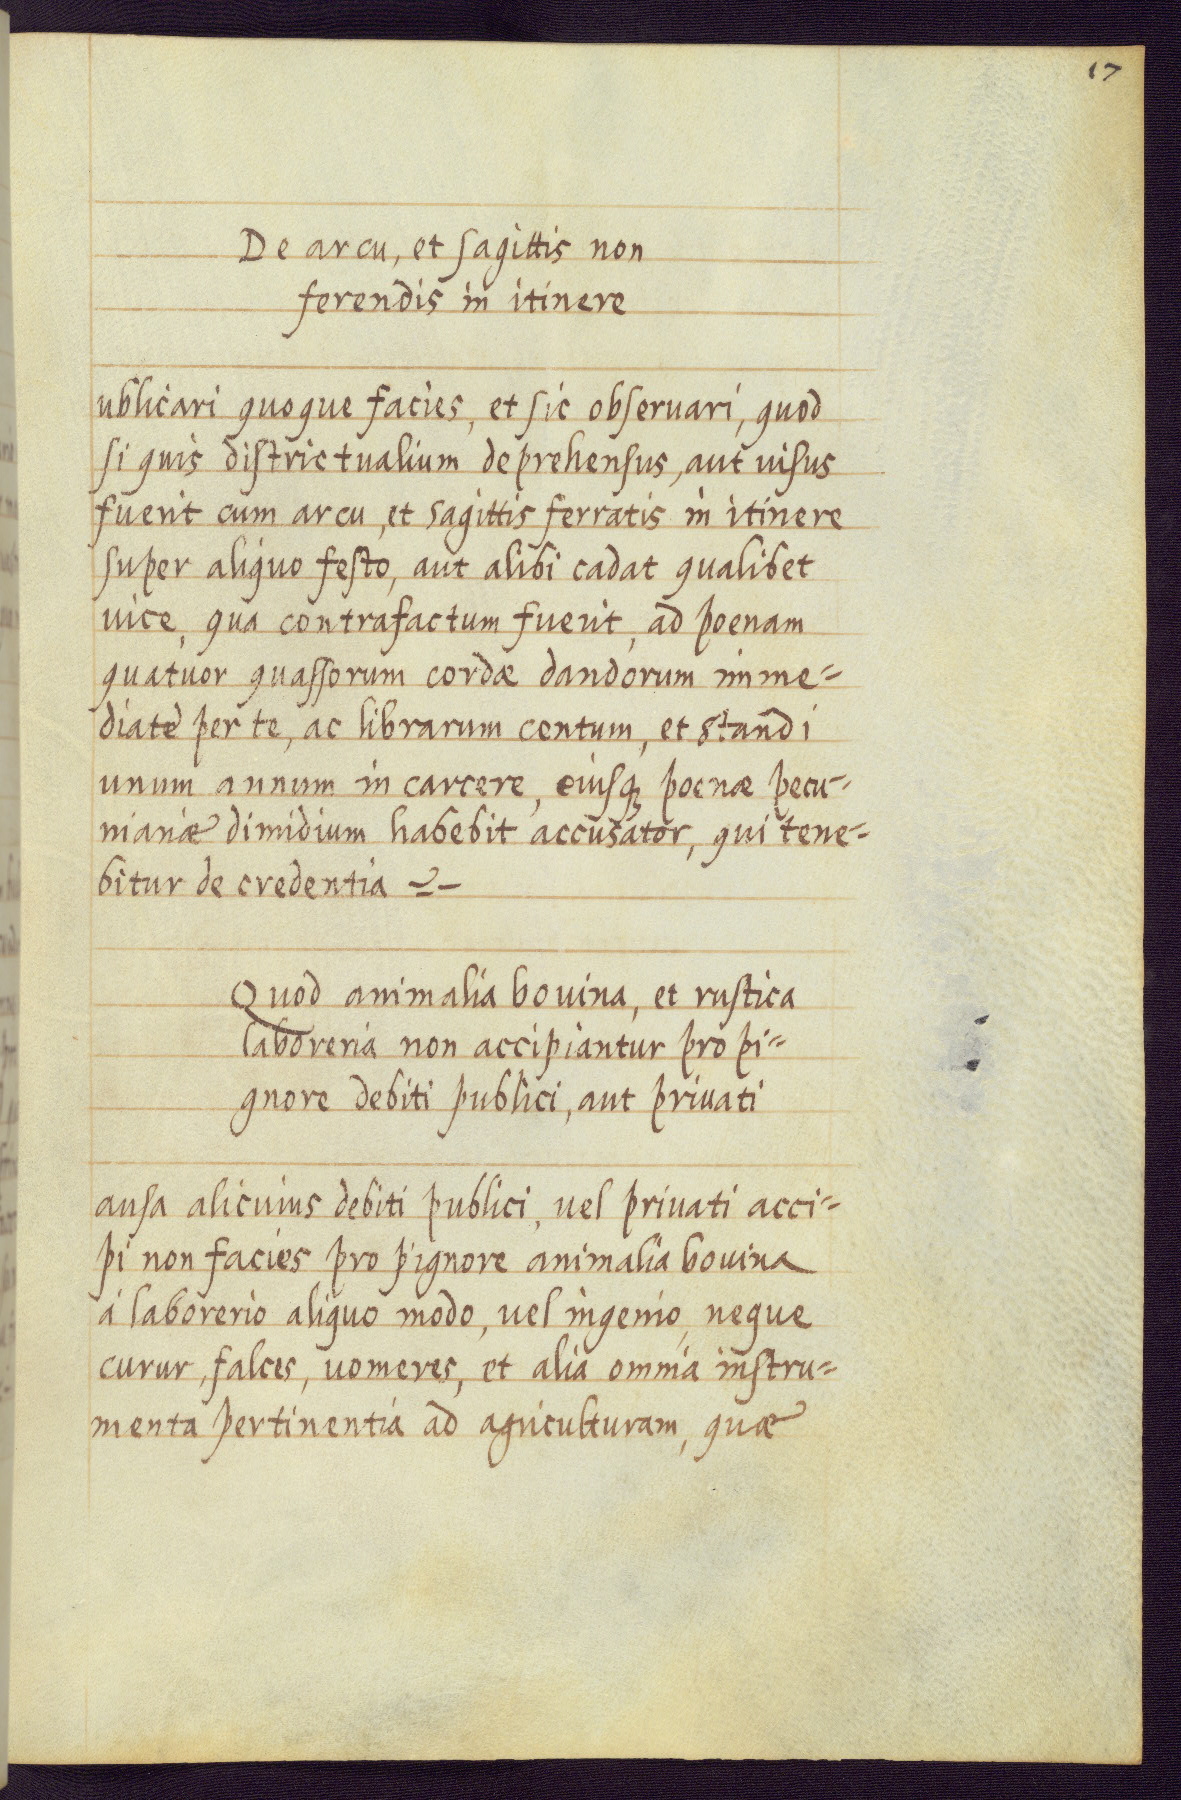 17
De arcu, et sagittis non
ferendis in itinere
ublicari quoque facies, et sic obseruari, quod
si quis districtualium deprehensus, aut uisus
fuerit cum arcu, et sagittis ferratis in itinere
super aliquo festo, aut alibi cadat qualibet
uice, qua contrafactum fuerit, ad poenam
quatuor quassorum cordæ dandorum imme=
diate per te, ac librarum centum, et standi
unum annum in carcere, eiusq; poenæ pecu=
niariæ dimidium habebit accusator, qui tene=
bitur de credentia
Quod animalia bouina, et rustica
laboreria non accipiantur pro pi=
gnore debiti publici, aut priuati
ausa alicuius debiti publici, uel priuati acci=
pi non facies pro pignore animalia bouina
á laborerio aliquo modo, uel ingenio, neque
currur, falces, uomeres, et alia omnia instru=
menta pertinentia ad agriculturam, quæ